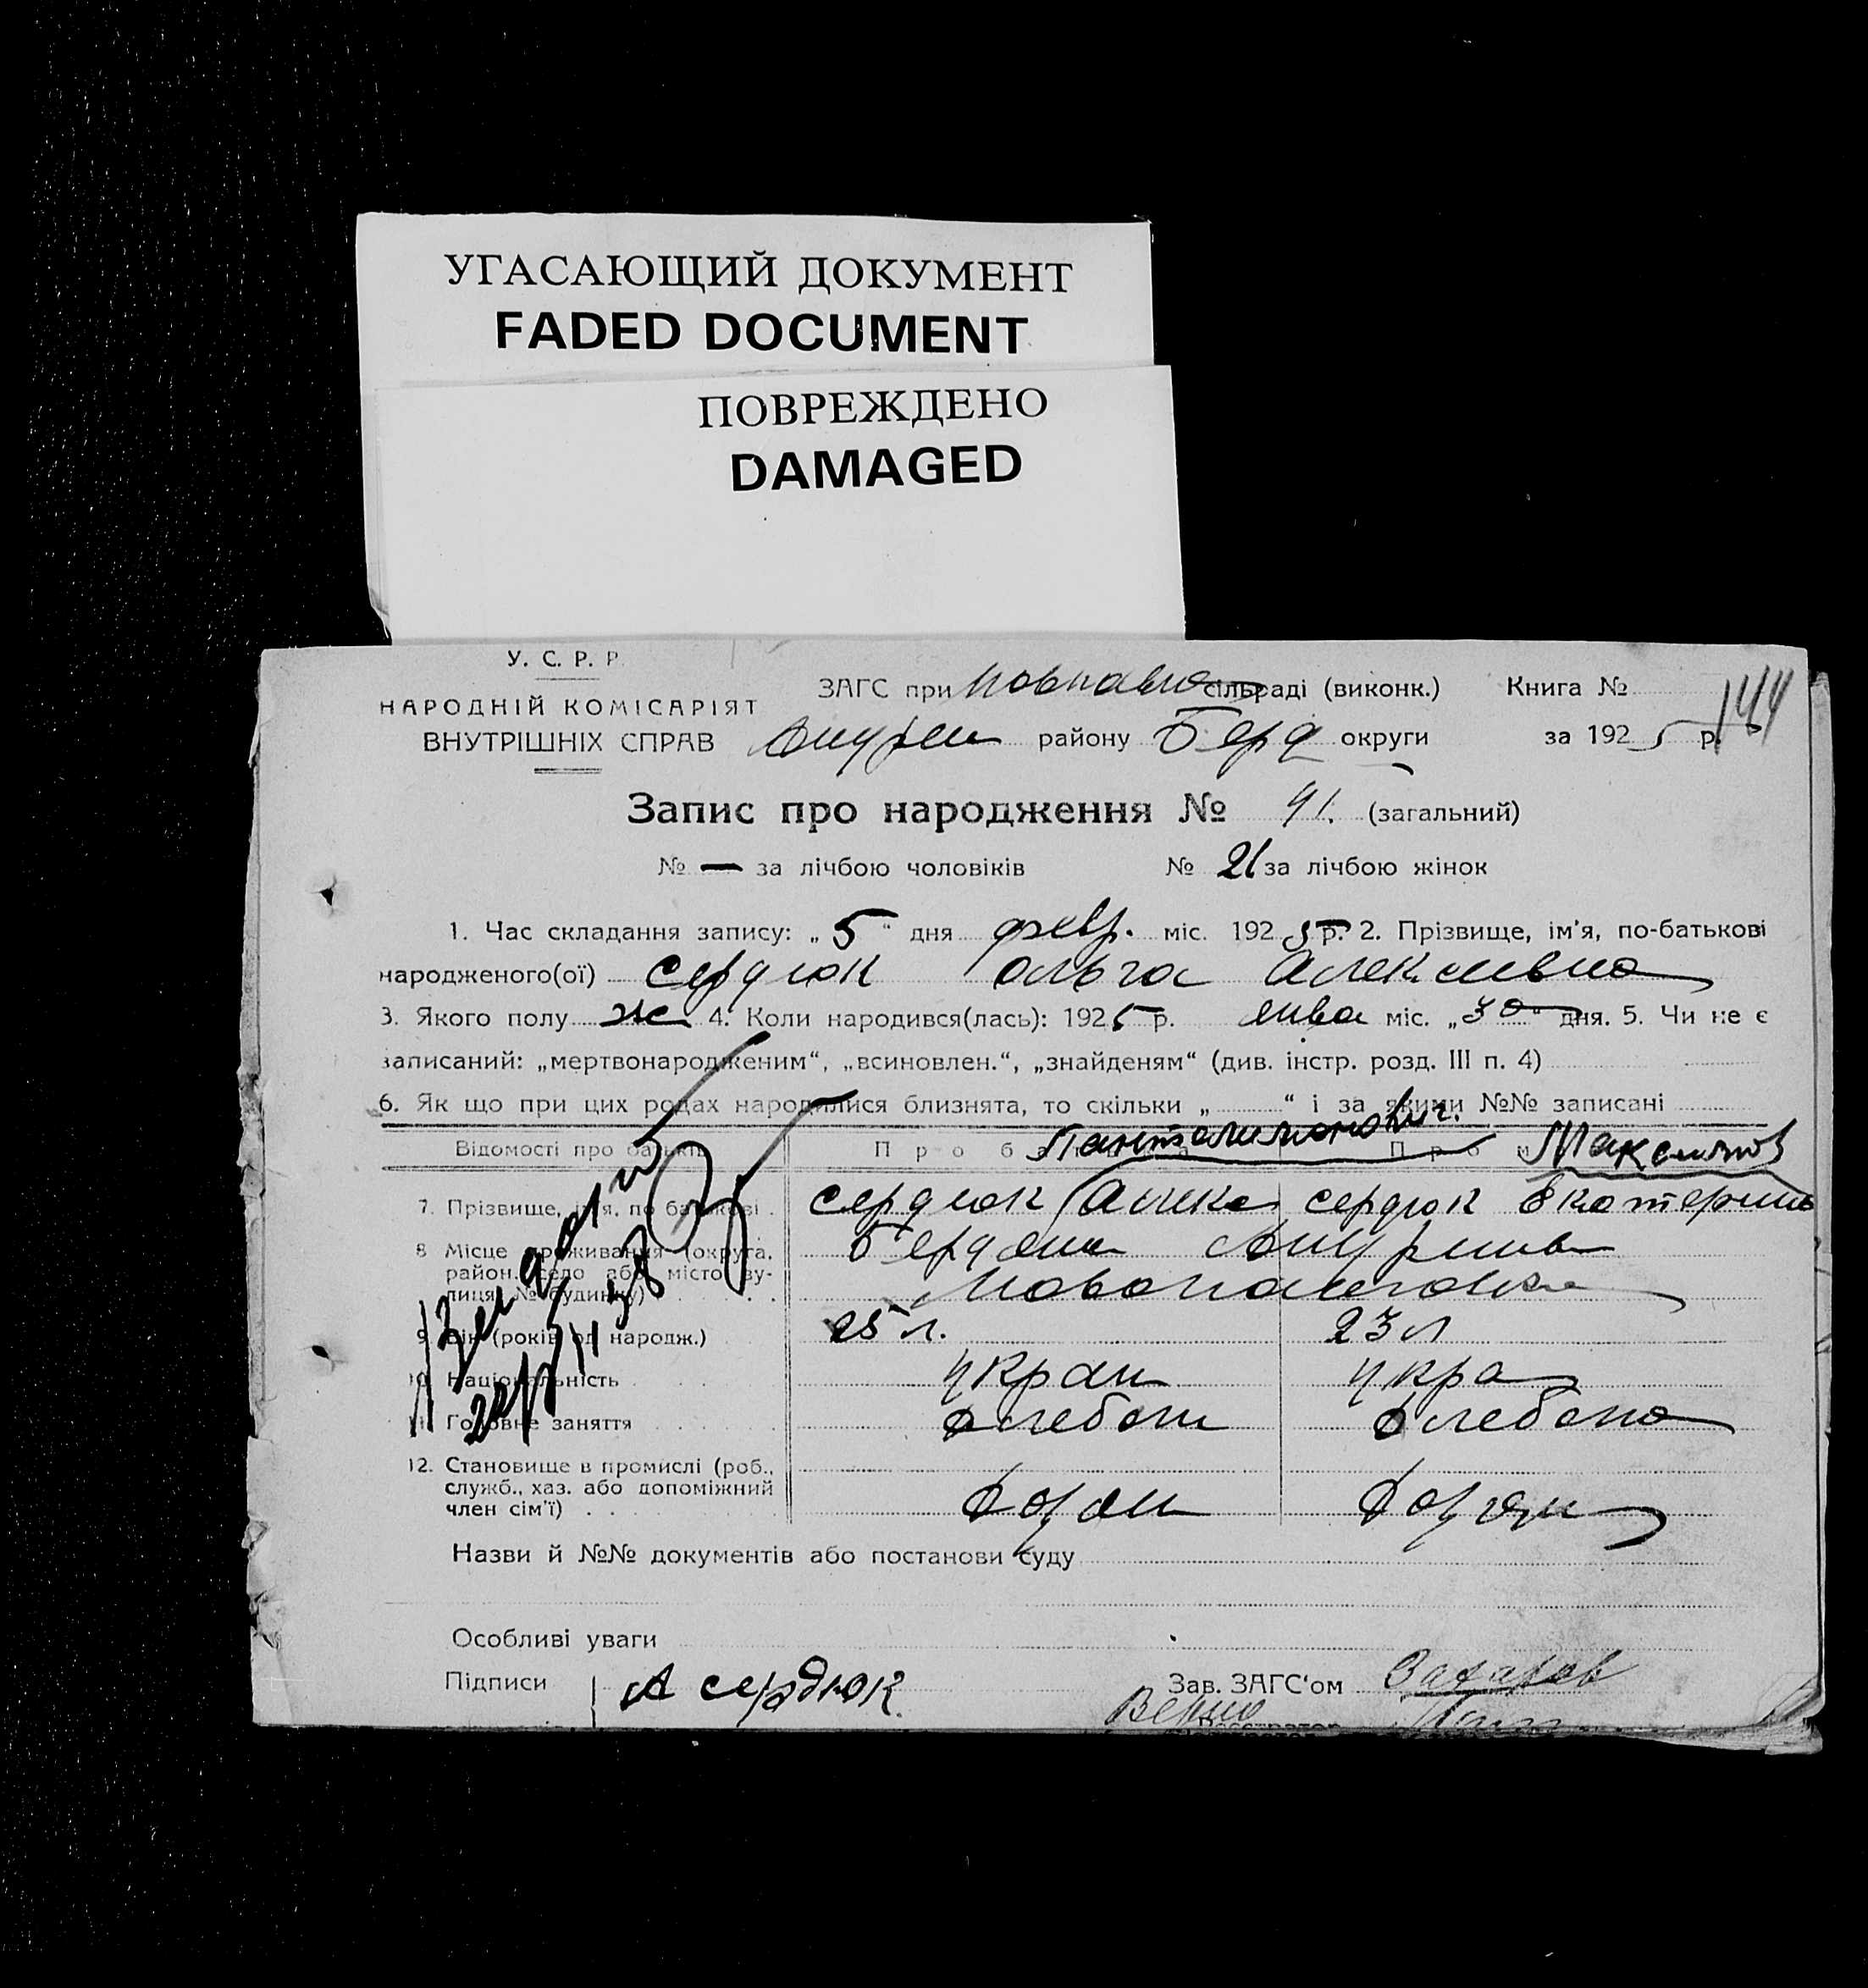 УГАСАЮЩИЙ ДОКУМЕНТ
FADED DOCUMENT
ПОВРЕЖДЕНО
DAMAGED
У. С. Р. Р.
НАРОДНІЙ КОМІСАРІЯТ
ВНУТРІШНІХ СПРАВ
ЗАГС при Новпавло сільраді (виконк.) Книга № 144
району Берд округи за 1925 р.
Запис про народження № 41. (загальний)
№ — за лічбою чоловіків № 21 за лічбою жінок
1. Час складання запису: „5“ дня февр. міс. 1925 р. 2. Прізвище, ім'я, по-батькові
народженого(ої) Сердюк Ольга Алексевна
3. Якого полу ж 4. Коли народився(лась): 1925 р. янва міс. „30“ дня. 5. Чи не є
записаний: „мертвонародженим“, „всиновлен.“, „знайденям“ (див. інстр. розд. III п. 4)
6. Як що при цих родах народилися близнята, то скільки „ “ і за якими №№ записані
Відомості про батьків Про б Пантелимонович. Про м Максимов
7. Прізвище, ім'я, по батькові Сердюк Алекс Сердюк Екатерина
8 Місце проживання (округа, Бердян
район, село або місто ву-
лиця, № будинку) Новопавловка
9. Вік (років од народж.) 25 л. 23 л
10. Національність украи укра
11. Головне заняття хлебоп хлебопа
12. Становище в промислі (роб.,
служб., хаз. або допоміжний
член сім'ї)
Назви й №№ документів або постанови суду
Особливі уваги
Підписи А Сердюк. Зав. ЗАГС'ом Захаров
Верно